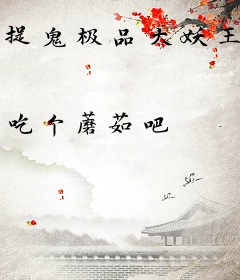 捉鬼极品大妖王
吃个蘑茹吧